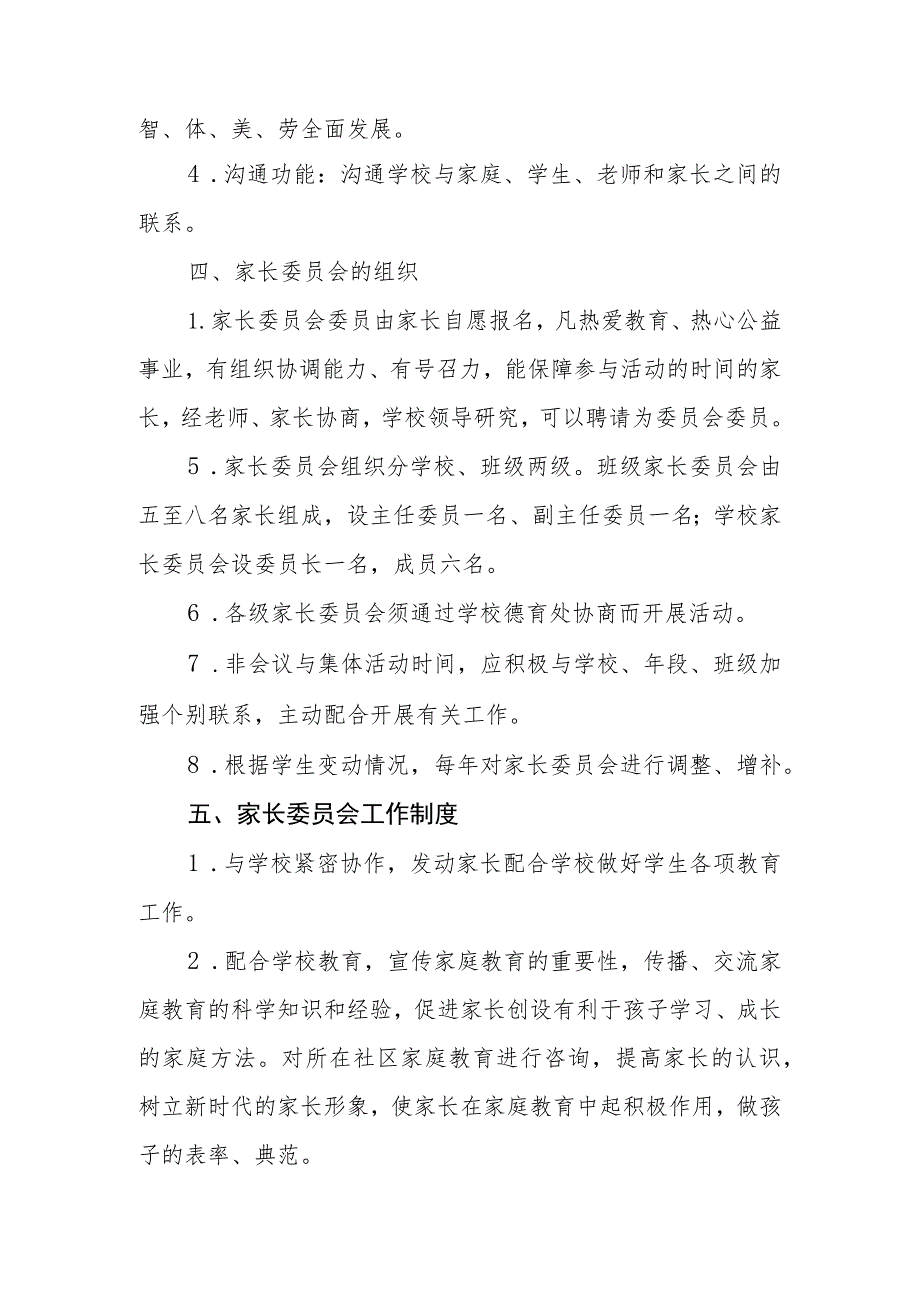 智、体、美、劳全面发展。
4．沟通功能：沟通学校与家庭、学生、老师和家长之间的
联系。
四、家长委员会的组织
1.家长委员会委员由家长自愿报名，凡热爱教育、热心公益
事业，有组织协调能力、有号召力，能保障参与活动的时间的家
长，经老师、家长协商，学校领导研究，可以聘请为委员会委员。
5．家长委员会组织分学校、班级两级。班级家长委员会由
五至八名家长组成，设主任委员一名、副主任委员一名；学校家
长委员会设委员长一名，成员六名。
6．各级家长委员会须通过学校德育处协商而开展活动。
7．非会议与集体活动时间，应积极与学校、年段、班级加
强个别联系，主动配合开展有关工作。
8．根据学生变动情况，每年对家长委员会进行调整、增补。
五、家长委员会工作制度
1．与学校紧密协作，发动家长配合学校做好学生各项教育
工作。
2．配合学校教育，宣传家庭教育的重要性，传播、交流家
庭教育的科学知识和经验，促进家长创设有利于孩子学习、成长
的家庭方法。对所在社区家庭教育进行咨询，提高家长的认识，
树立新时代的家长形象，使家长在家庭教育中起积极作用，做孩
子的表率、典范。